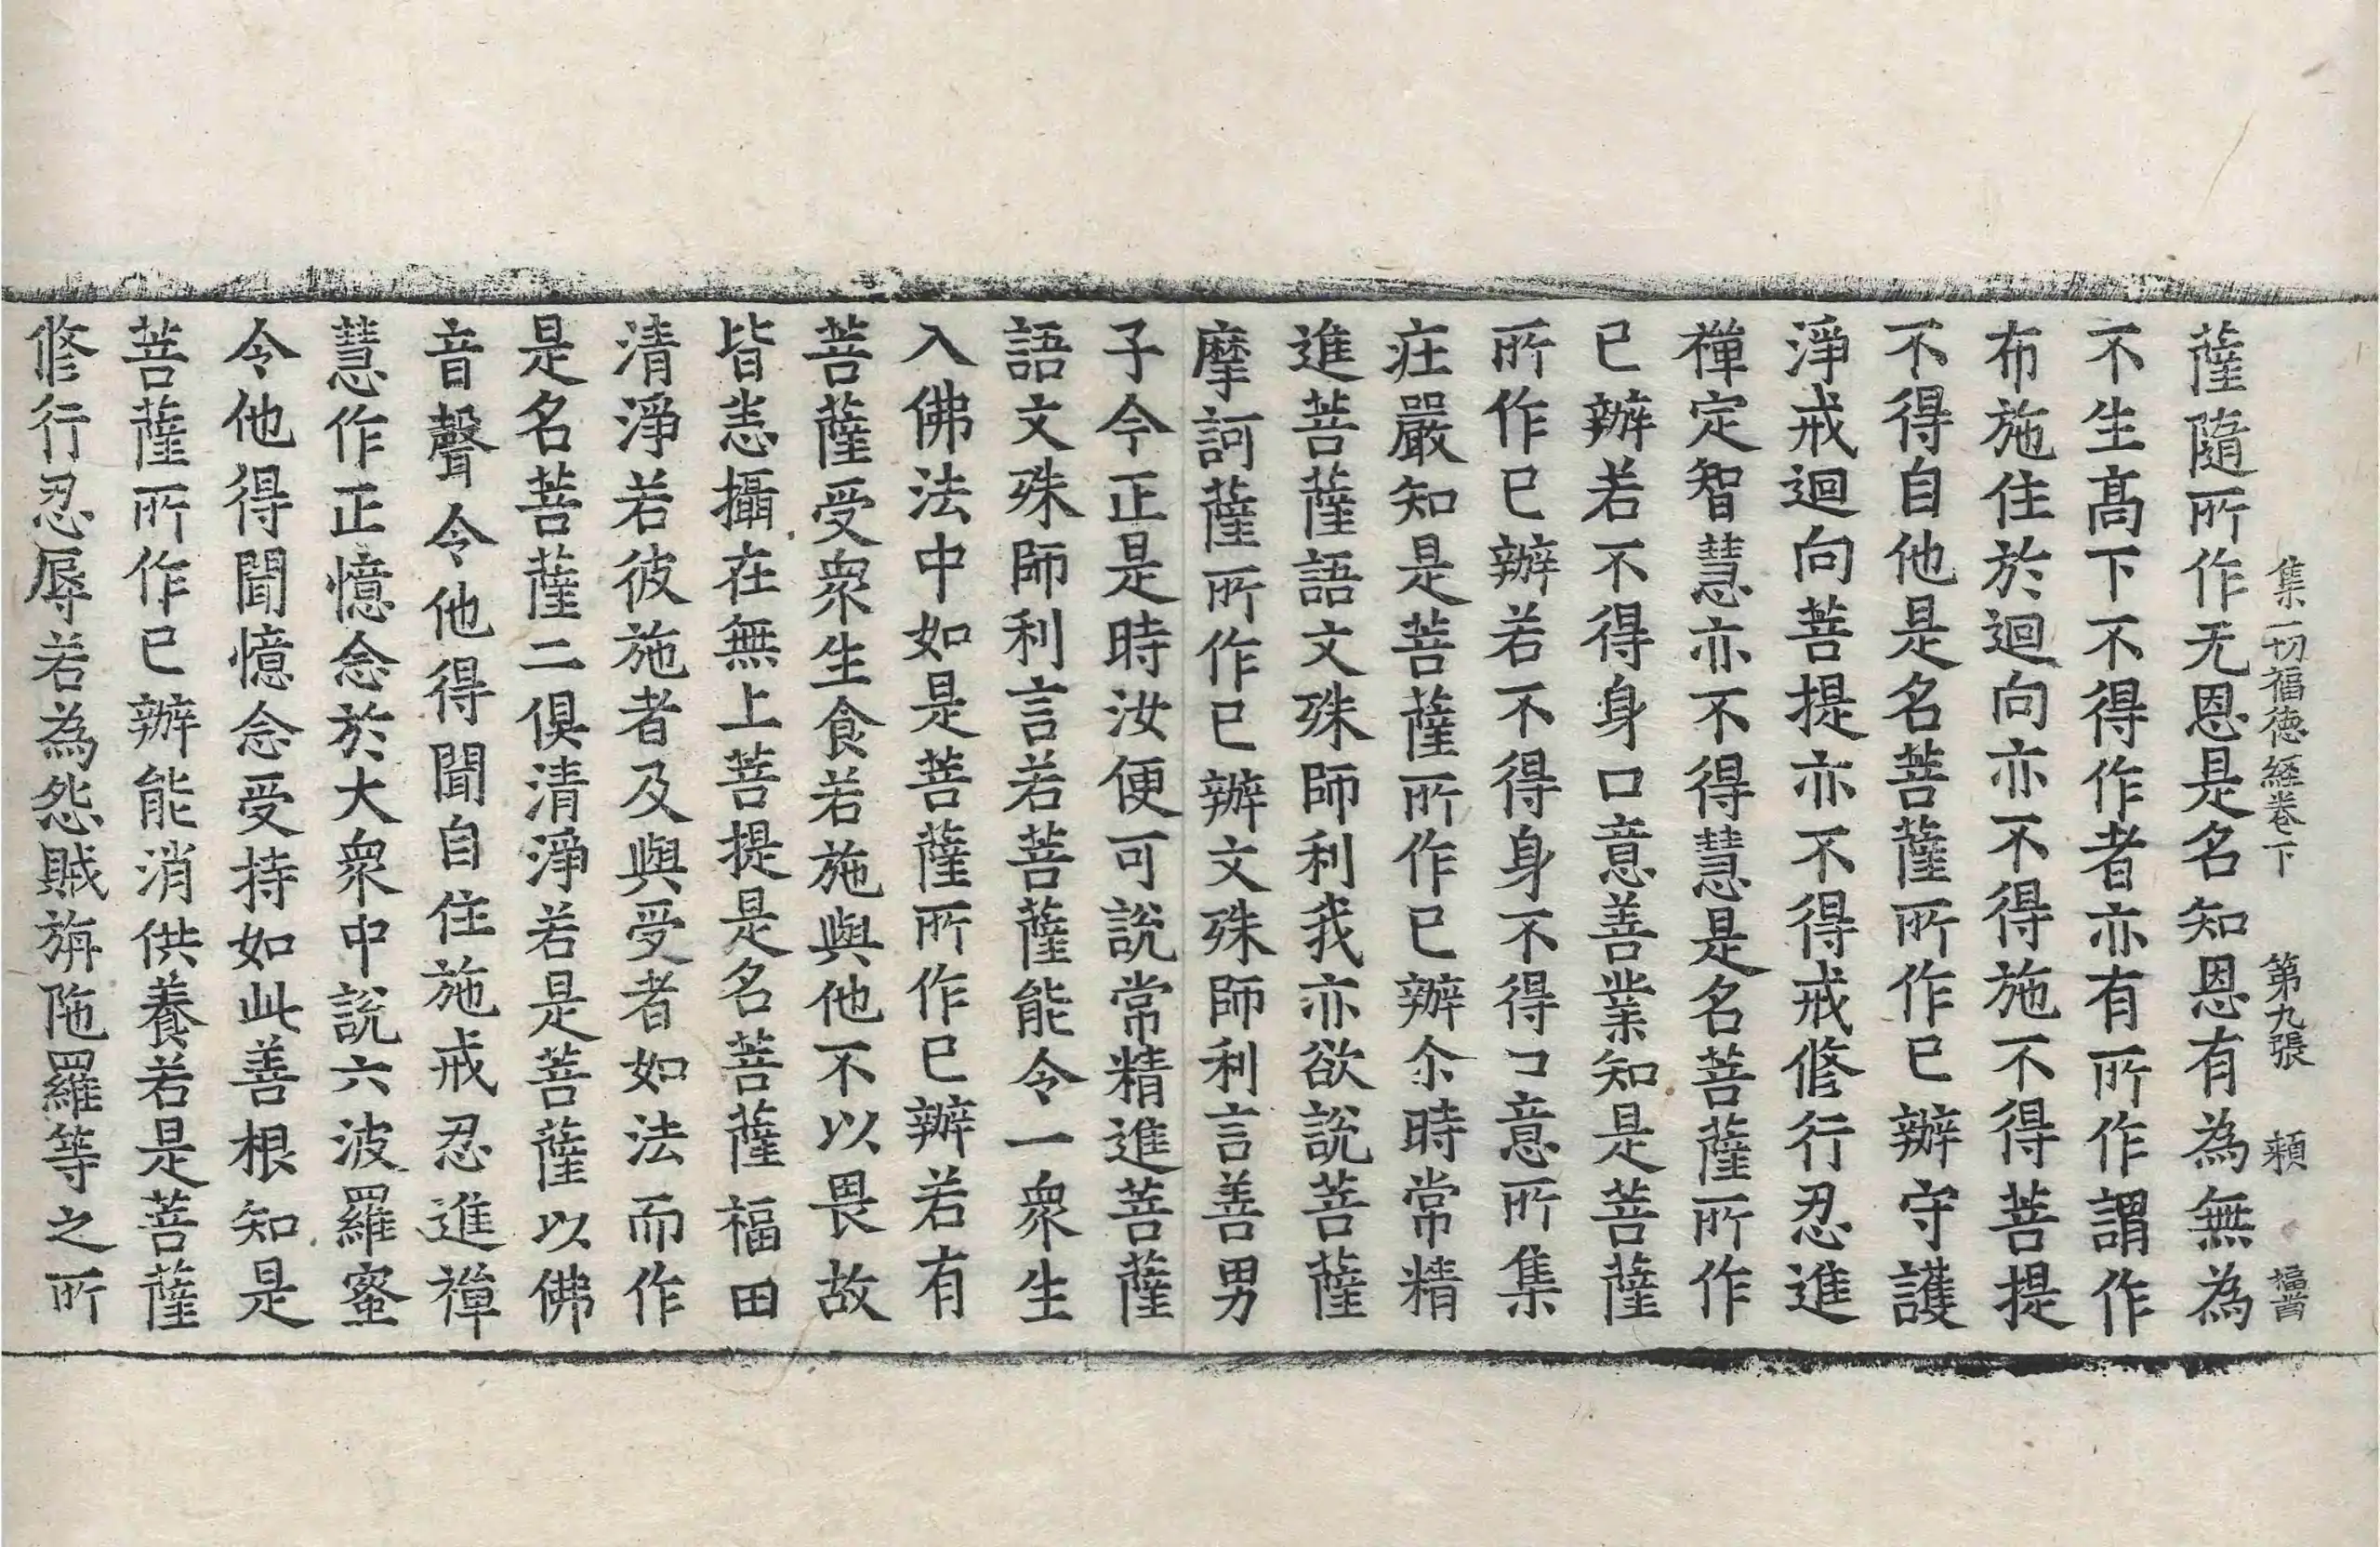 集一切福德經卷下　第九張　頼
薩隨所作无恩是名知恩有為無為
不生高下不得作者亦有所作謂作
布施住於迴向亦不得施不得菩提
不得自他是名菩薩所作已辦守護
淨戒迴向菩提亦不得戒修行忍進
禪定智慧亦不得慧是名菩薩所作
已辦若不得身口意善業知是菩薩
所作已辦若不得身不得口意所集
莊嚴知是菩薩所作已辦尒時常精
進菩薩語文殊師利我亦欲說菩薩
摩訶薩所作已辦文殊師利言善男
子今正是時汝便可說常精進菩薩
語文殊師利言若菩薩能令一衆生
入佛法中如是菩薩所作已辦若有
菩薩受衆生食若施與他不以畏故
皆悉攝在無上菩提是名菩薩福田
清淨若彼施者及與受者如法而作
是名菩薩二俱清淨若是菩薩以佛
音聲令他得聞自住施戒忍進禪
慧作正憶念於大衆中說六波羅蜜
令他得聞憶念受持如此善根知是
菩薩所作已辦能消供養若是菩薩
修行忍辱若為怨賊旃陁羅等之所